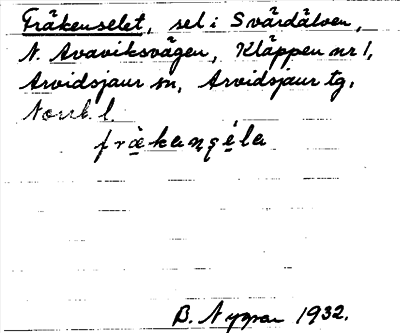 Fräkenselet, sel i Svärdälven,
N. Avaviksvägen, Kläppen nr 1,
Arvidsjaur sn, Arvidsjaur tg,
Norrb. l.
B. Nyman 1932.